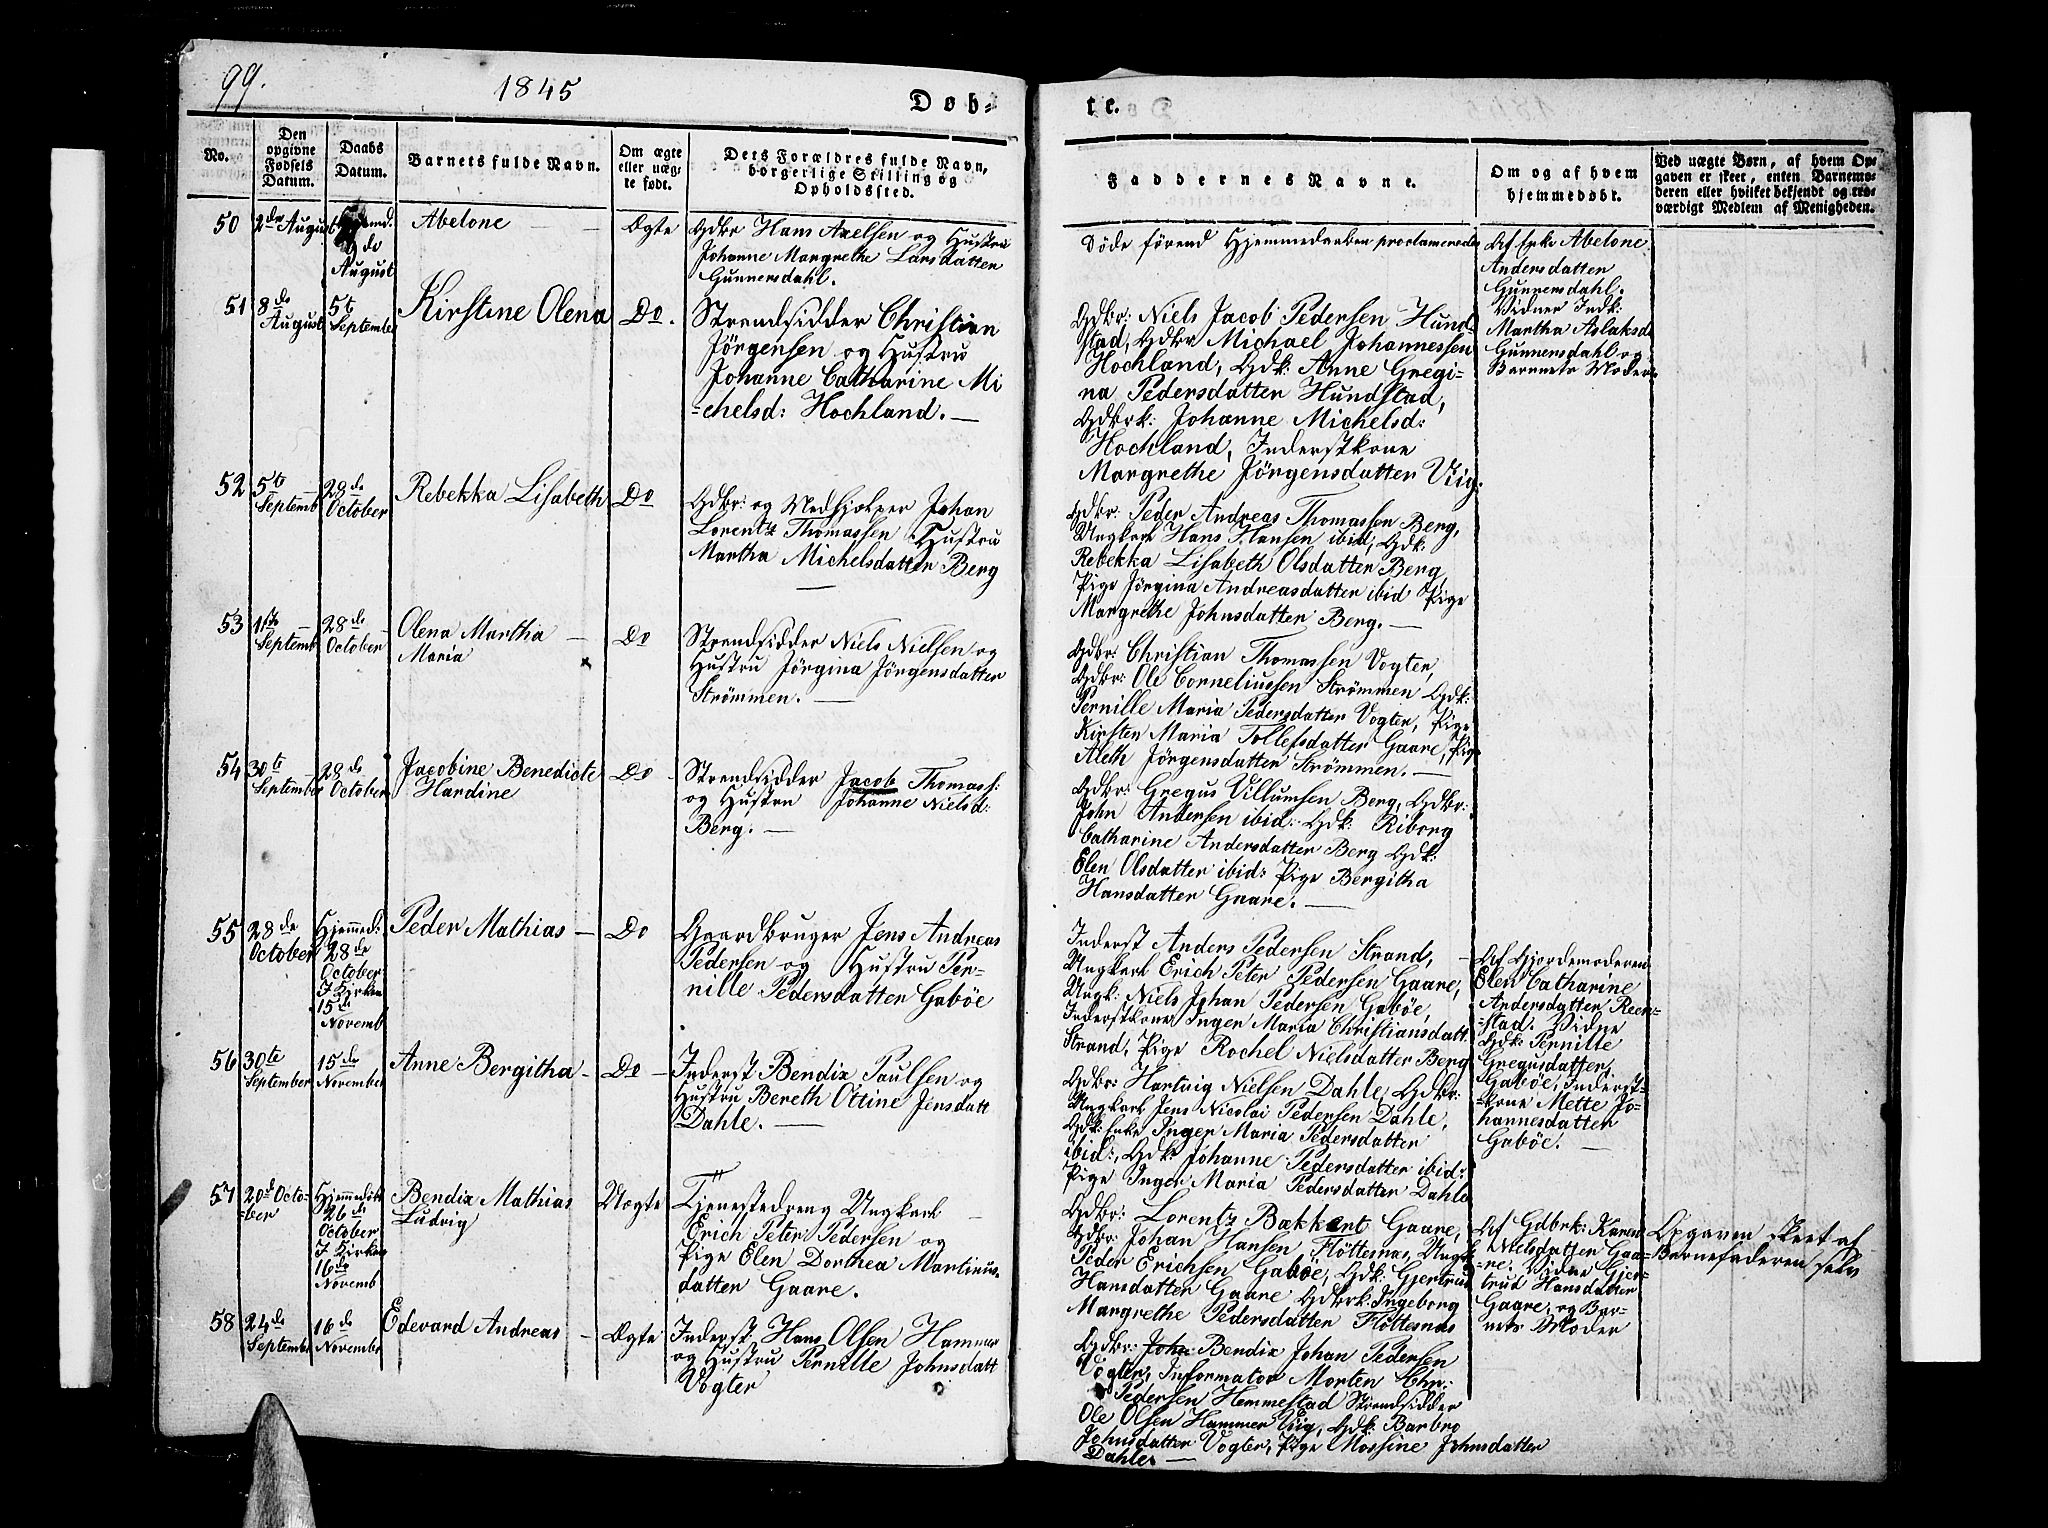 99.
1845
Døb-
te.
No.
Den
opgivne
Fødsels
Datum.
Daabs
Datum.
Barnets fulde Navn.
Om ægte
eller uæg-
te født.
Dets Forældres fulde Navn,
borgerlige Stilling og
Opholdssted.
Faddernes Navne.
Om og af hvem
hjemmedøbt.
Ved uægte Børn, af hvem Op-
gaven er skeet, enten Barnemo-
deren eller hvilket bekjendt og tro-
værdigt Medlem af Menigheden.
50
2de August
Hjemd.
2de
August
Abelone
Ægte
Gdbr Hans Axelsen og Hustru
Johanne Margrethe Larsdatten
Gunnersdahl.
Døde førend Hjemmedaaben proclameredes
Af Enke Abelone
Andersdatten
Gunnersdahl.
Vidner Indk:
Martha Aslaksd
Gunnersdahl og
Barnets Moder
51
8de
August
5te
September
Kirstine Olena
Do.
Strandsidder Christian
Jörgensen og Hustru
Johanne Catharine Mi
-chelsd: Hochland. —
Gdbr: Niels Jacob Pedersen Hund-
stad, Gdbr Michael Johannessen
Hochland, Gdk: Anne Gregi-
na Pedersdatter Hundstad,
Gdbrk: Johanne Michelsd:
Hochland, Inderstkone
Margrethe Jörgensdatter Viig.
52
5te
Septemb
28de
October
Rebekka Lisabeth
Do
Gdbr: og Medhjælper Johan
Lorentz Thomassen Hustru
Martha Michelsdatter Berg
Gdbr: Peder Andreas Thomassen Berg,
Ungkarl Hans Hansen ibid, Gdk:
Rebekka Lisabeth Olsdatter Berg,
Pige Jörgina Andreasdatter ibid Pige
Margrethe Johnsdatter Berg. —
53
1ste
Septemb
28de
October
Olena Martha
Maria
Do
Strandsidder Niels Nielsen og
Hustru Jörgina Jörgensdatter
Strömmen. —
Gdbr: Christian Thomassen Vogter,
Gdbr: Ole Corneliussen Strömmen Gdk:
Pernille Maria Pedersdatter Vogter, Pige
Kirsten Maria Tollefsdatter Gaare, Pige
Aleth Jörgensdatter Strömmen. —
54
30te
September
28de
October
Jacobine Benedicte
Hardine
Do
Strandsidder Jacob Thomass:
og Hustru Johanne Nielsd:
Berg. —
Gdbr: Gregus Villumsen Berg, Gdbr:
John Andersen ibid: Gdk: Riborg
Catharine Andersdatter Berg Gdk:
Elen Olsdatter ibid: Pige Bergitha
Hansdatter Gaare. —
55
28de
October
Hjemmed:
28de
October
I Kirken
15de
Novemb
Peder Mathias —
Do
Gaardbruger Jens Andreas
Pedersen og Hustru Per-
nille Pedersdatter Gaböe
Inderst Anders Pedersen Strand,
Ungkarl Erich Peter Pedersen Gaare,
Ungk: Niels Johan Pedersen Gaböe,
Inderstkone Inger Maria Christiansdatt
Strand, Pige Rochel Nielsdatter Berg
Af Gjordemoderen
Elen Catharine
Andersdatter Reen-
-stad. Vidne
Gdk: Pernille
Gregusdatter,
Gaböe, Inderst-
-kone Mette Jo-
hannesdatter
Gaböe. —
56
30te
September
15de
November
Anne Bergitha —
Do —
Inderst Bendix Paulsen og
Hustru Bereth Ottine Jensdatt
Dahle. —
Gdbr: Hartvig Nielsen Dahle, Gdbr:
Ungkarl Jens Nicolai Pedersen Dahle,
Gdk: Enke Inger Maria Pedersdatter
ibid:, Gdk: Johanne Pedersdatter ibid:
Pige Inger Maria Pedersdatter Dahle
57
20de Octo-
-ber
Hjemmedöbt
26de
October
I Kirken
16de
Novemb
Bendix Mathias
Ludvig
Uægte
Tjenestedreng Ungkarl
Erich Peter Pedersen og
Pige Elen Dorthea Martinus-
datter Gaare.
Gdbr: Lorentz Bækkert Gaare,
Gdbr: Johan Hansen, Flöttenæs, Ungk
Peder Erichsen Gaböe, Gdk: Gjertrud
Hansdatter Gaare Gdbrk. Ingeborg
Margrethe Pedersdatter Flöttenæs
Af Gdbrk: Karen
Nielsdatter Gaa-
-re. Vidne Gjer-
trud Hansdatter
Gaare, og Bar-
nets Moder
Opgaven skeet af
Barnefaderen selv
58
24de
September
16de
November
Edevard Andreas —
Ægte
Inderst Hans Olsen Hammer
og Hustru Pernille Johnsdatt
Vogter
Gdbr: Joha Bendix Johan Pedersen
Vogter, Informator Morten Chr:
Pedersen Hemmestad Strandsidder
Ole Olsen Hammer Viig, Gdk: Barbro
Johnsdatter Vogter, Pige Mossine Johnsdatter
Dahle. —